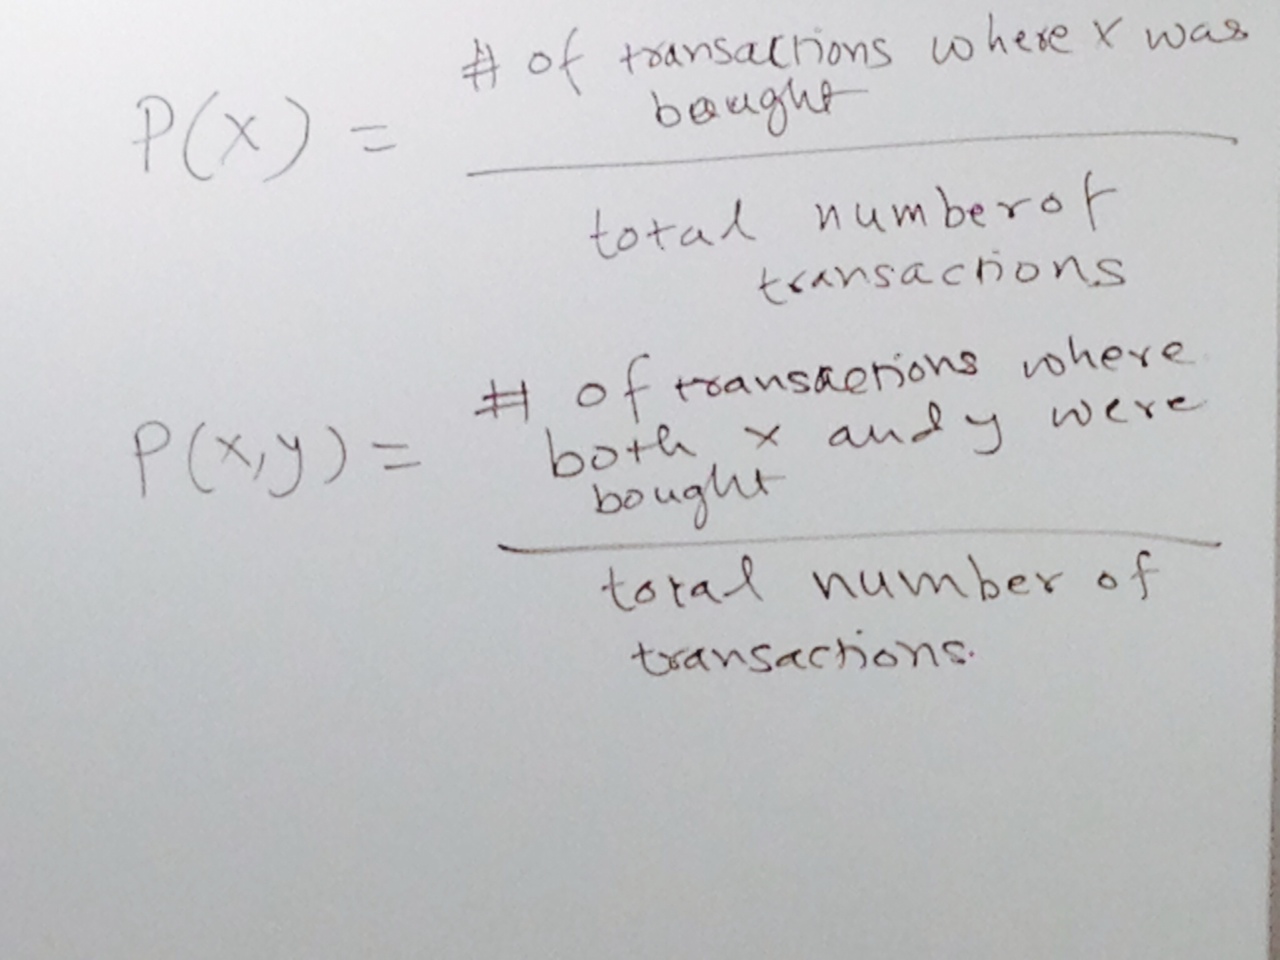 # of transactions where x was
bought
P(x) =
total number of
transactions
# of transactions where
both x and y were
bought
P(x,y) =
total number of
transactions.